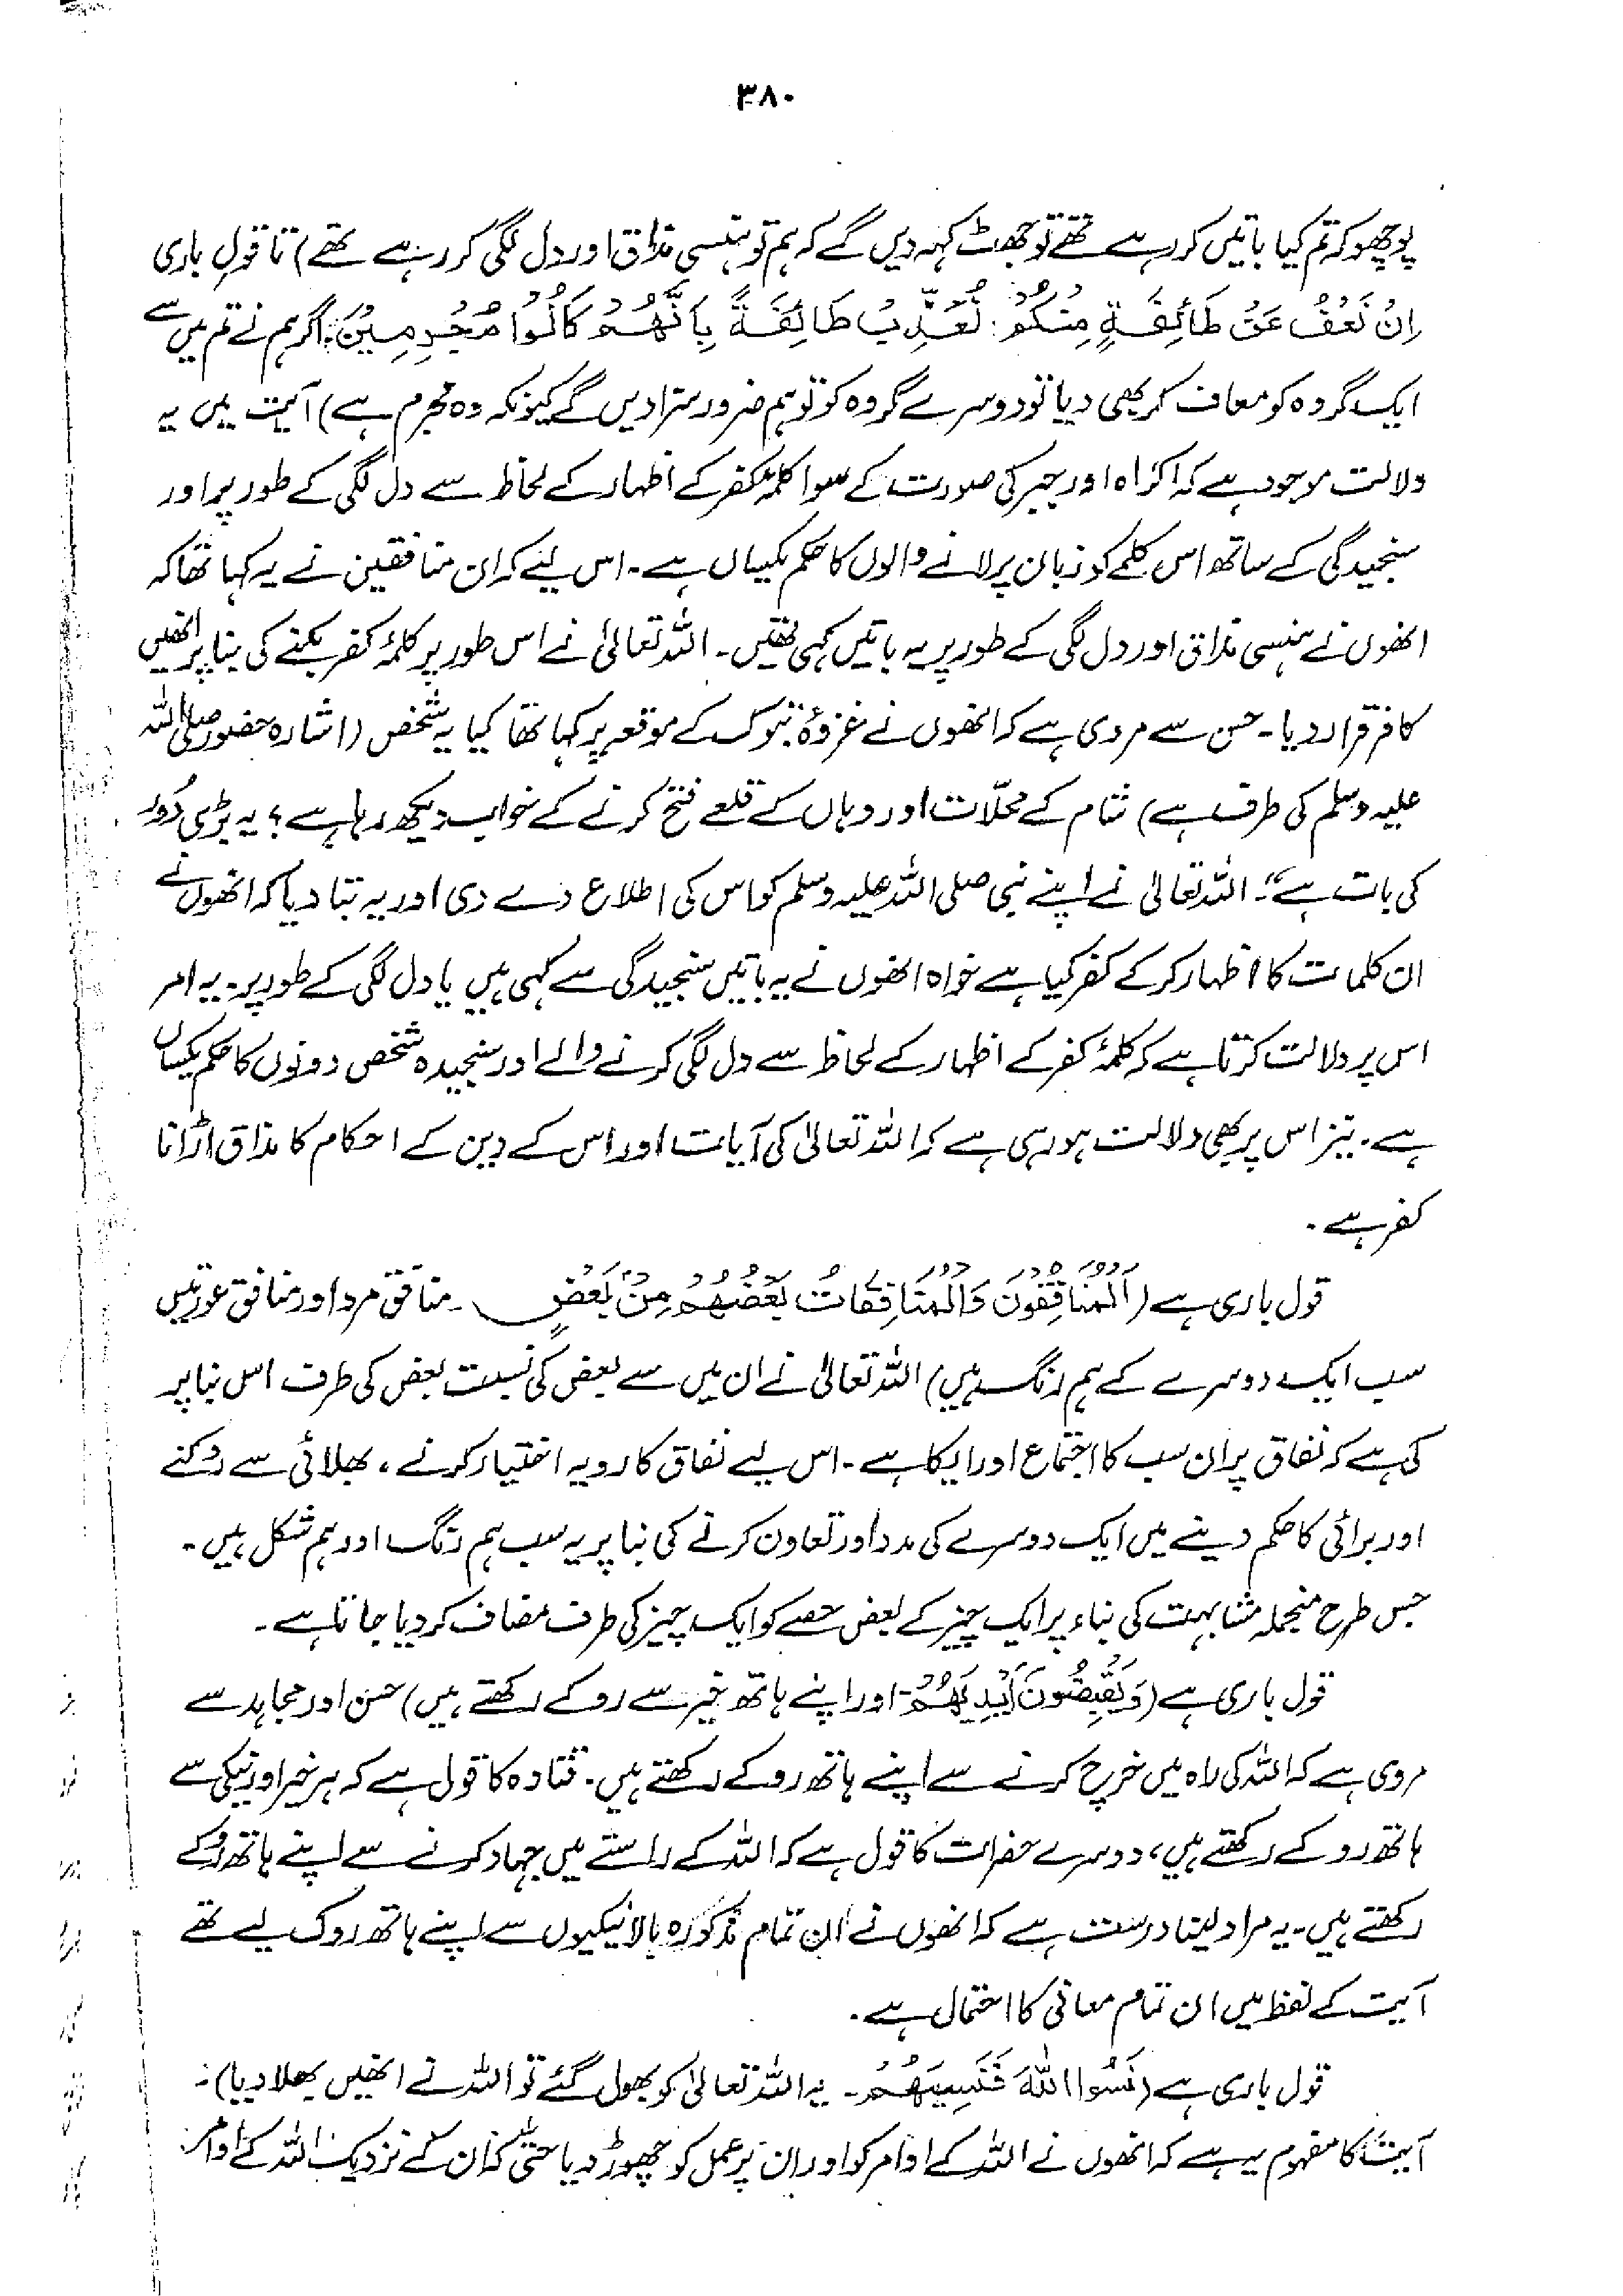 ۳۸۰
پوچھو کہ تم کیا باتیں کر رہے تھے تو جھٹ کہہ دیں گے کہ ہم تو ہنسی مذاق اور دل لگی کر رہے تھے) تا قولِ باری
(اِنْ نَعْفُ عَنْ طَائِفَةٍ مِنْكُمْ نُعَذِّبْ طَائِفَةً بِاَنَّهُمْ كَانُوْا مُجْرِمِيْنَ۔ اگر ہم نے تم میں سے
ایک گروہ کو معاف کر بھی دیا تو دوسرے گروہ کو تو ہم ضرور سزا دیں گے کیونکہ وہ مجرم ہے) آیت میں یہ
دلالت موجود ہے کہ اکراہ اور جبر کی صورت کے سوا کلمۂ کفر کے اظہار کے لحاظ سے دل لگی کے طور پر اور
سنجیدگی کے ساتھ اس کلمے کو زبان پر لانے والوں کا حکم یکساں ہے۔ اس لیے کہ ان منافقین نے یہ کہا تھا کہ
انھوں نے ہنسی مذاق اور دل لگی کے طور پر یہ باتیں کہی تھیں۔ اللہ تعالیٰ نے اس طور پر کلمۂ کفر بکنے کی بنا پر انھیں
کافر قرار دیا۔ حسن سے مروی ہے کہ انھوں نے غزوۂ تبوک کے موقعہ پر کہا تھا کیا یہ شخص (اشارہ حضور صلی اللہ
علیہ وسلم کی طرف ہے) شام کے محلّات اور وہاں کے قلعے فتح کرنے کے خواب دیکھ رہا ہے؛ یہ بڑی دُور
کی بات ہے“۔ اللہ تعالیٰ نے اپنے نبی صلی اللہ علیہ وسلم کو اس کی اطلاع دے دی اور یہ بتا دیا کہ انھوں نے
ان کلمات کا اظہار کر کے کفر کیا ہے خواہ انھوں نے یہ باتیں سنجیدگی سے کہی ہیں یا دل لگی کے طور پر۔ یہ امر
اس پر دلالت کرتا ہے کہ کلمۂ کفر کے اظہار کے لحاظ سے دل لگی کرنے والے اور سنجیدہ شخص دونوں کا حکم یکساں
ہے۔ نیز اس پر بھی دلالت ہو رہی ہے کہ اللہ تعالیٰ کی آیات اور اس کے دین کے احکام کا مذاق اڑانا
کفر ہے۔
قول باری ہے (اَلْمُنَافِقُوْنَ وَالْمُنَافِقَاتُ بَعْضُهُمْ مِنْ بَعْضٍ۔ منافق مرد اور منافق عورتیں
سب ایک دوسرے کے ہم رنگ ہیں) اللہ تعالیٰ نے ان میں سے بعض کی نسبت بعض کی طرف اس بنا پر
کی ہے کہ نفاق پر ان سب کا اجتماع اور ایکا ہے۔ اس لیے نفاق کا رویہ اختیار کرنے، بھلائی سے روکنے
اور برائی کا حکم دینے میں ایک دوسرے کی مدد اور تعاون کرنے کی بنا پر یہ سب ہم رنگ اور ہم شکل ہیں۔
جس طرح منجملہ مشابہت کی بناء پر ایک چیز کے بعض حصے کو ایک چیز کی طرف مضاف کر دیا جاتا ہے۔
قول باری ہے (وَيَقْبِضُوْنَ اَيْدِيَهُمْ۔ اور اپنے ہاتھ خیر سے روکے رکھتے ہیں) حسن اور مجاہد سے
مروی ہے کہ اللہ کی راہ میں خرچ کرنے سے اپنے ہاتھ روکے رکھتے ہیں۔ قتادہ کا قول ہے کہ ہر خیر اور نیکی سے
ہاتھ روکے رکھتے ہیں، دوسرے حضرات کا قول ہے کہ اللہ کے راستے میں جہاد کرنے سے اپنے ہاتھ روکے
رکھتے ہیں۔ یہ مراد لینا درست ہے کہ انھوں نے ان تمام مذکورہ بالا نیکیوں سے اپنے ہاتھ روک لیے تھے
آیت کے لفظ میں ان تمام معانی کا احتمال ہے۔
قول باری ہے (نَسُوا اللّٰهَ فَنَسِيَهُمْ۔ یہ اللہ تعالیٰ کو بھول گئے تو اللہ نے انھیں بھلا دیا)۔
آیت کا مفہوم یہ ہے کہ انھوں نے اللہ کے اوامر کو اور ان پر عمل کو چھوڑ دیا حتیٰ کہ ان کے نزدیک اللہ کے اوامر